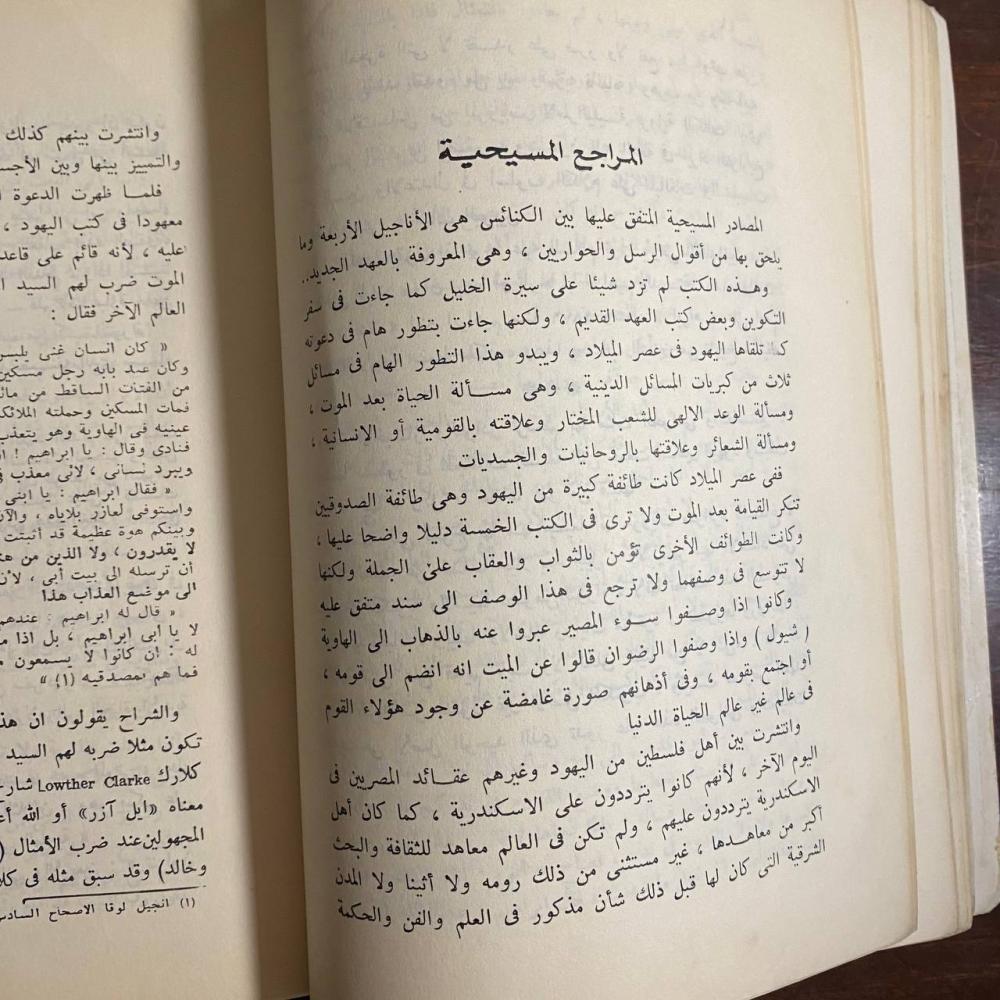 المراجع المسيحية
المصادر المسيحية المتفق عليها بين الكنائس هى الأناجيل الأربعة وما
يلحق بها من أقوال الرسل والحواريين ، وهى المعروفة بالعهد الجديد..
وهـذه الكتب لم تزد شيئا على سيرة الخليل كما جاءت فى سفر
التكوين وبعض كتب العهد القديم ، ولكنها جاءت بتطور هام فى دعوته
كما تلقاها اليهود فى عصر الميلاد ، ويبدو هذا التطور الهام فى مسائل
ثلاث من كبريات المسائل الدينية ، وهى مســألة الحياة بعد الموت ،
ومسألة الوعد الالهى للشعب المختار وعلاقته بالقومية أو الانسانية ،
ومسألة الشعائر وعلاقتها بالروحانيات والجسديات
ففى عصر الميلاد كانت طائفة كبيرة من اليهود وهى طائفة الصدوقيين
تنكر القيامة بعد الموت ولا ترى فى الكتب الخمسة دليلا واضحا عليها ،
وكانت الطوائف الأخرى تؤمن بالثواب والعقاب على الجملة ولكنها
لا تتوسع فى وصفهما ولا ترجع فى هذا الوصف الى سند متفق عليه
وكانوا اذا وصـفوا سـوء المصير عبروا عنه بالذهاب الى الهاوية
( شيول ) واذا وصفوا الرضوان قالوا عن الميت انه انضم الى قومه ،
أو اجتمع بقومه ، وفى أذهانهم صورة غامضة عن وجود هؤلاء القوم
فى عالم غير عالم الحياة الدنيا
وانتشرت بين أهل فلسطين من اليهود وغيرهم عقـائد المصريين فى
اليوم الآخر ، لأنهم كانوا يترددون على الاسكندرية ، كما كان أهل
الاسكندرية يترددون عليهم ، ولم تكن فى العالم معاهد للثقافة والبحث
أكبر من معاهـدها ، غير مستثنى من ذلك رومه ولا أثينا ولا المدن
الشرقية التى كان لها قبل ذلك شأن مذكور فى العلم والفن والحكمة
وانتشرت بينهم كذلك
والتمييز بينها وبين الأجس
فلمـا ظهرت الدعوة ا
معهودا فى كتب اليهود ،
عليه ، لأنه قائم على قاعد
الموت ضرب لهم السيد ا
العالم الآخر فقال :
« كان انسان غنى يلبس
وكان عند بابه رجل مسكين
من الفتات الساقط من مائد
فمات المسكين وحملته الملائك
عينيه فى الهاوية وهو يتعذب
فنادى وقال : يا ابراهيم ! ا
ويبرد لسانى ، لأنى معذب فى
« فقال ابراهيم : يا ابنى
واستوفى لعازر بلاياه ، والآن
وبينكم هوة عظيمة قد أثبتت
لا يقدرون ، ولا الذين من هن
أن ترسله الى بيت أبى ، لأن
الى موضع العذاب هذا
« قال له ابراهيم : عندهم
لا يا أبى ابراهيم ، بل اذا م
له : ان كانوا لا يسمعون م
فما هم بمصدقيه (١) »
والشراح يقولون ان هذ
تكون مثلا ضربه لهم السيد
كلارك Lowther Clarke شار
معناه «ايل آزر» أو الله أع
المجهولين عند ضرب الأمثال (
وخالد) وقد سبق مثله فى كلا
(١) انجيل لوقا الاصحاح السادس